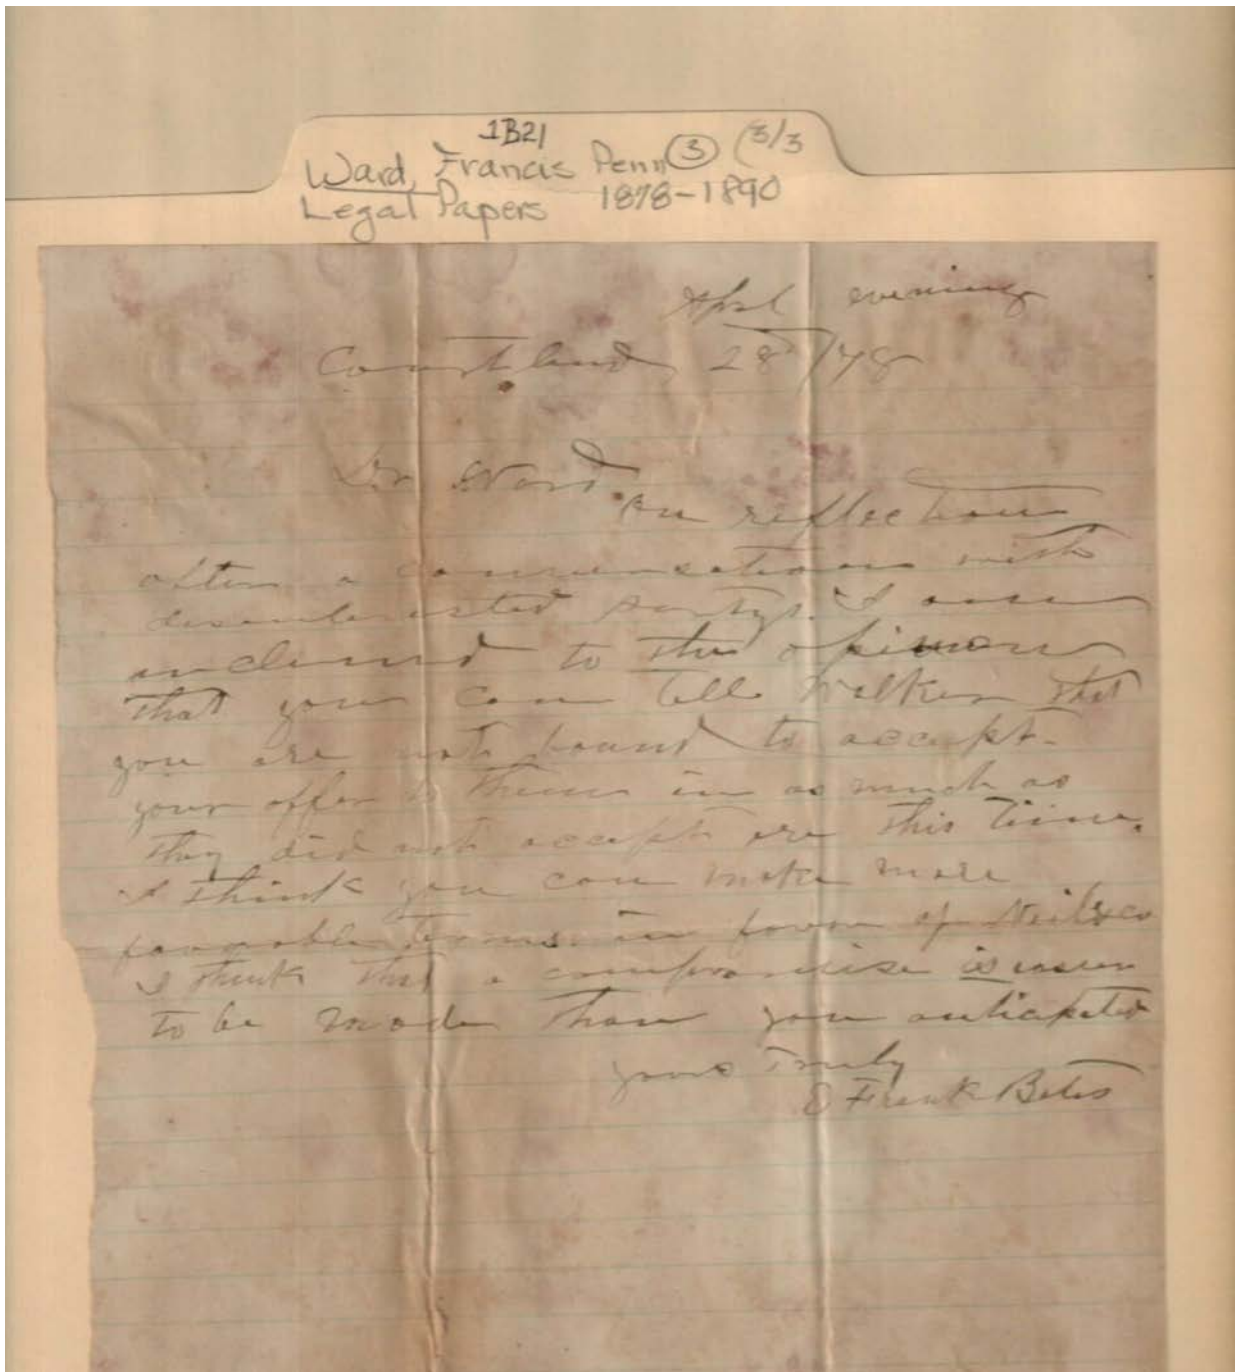 1B21
Ward, Francis Penn ③ (3/3
Legal Papers 1878-1890
April evening
Courtland 28/78
Dr Ward.
On reflection
after a conversation with
disinterested partys I am
inclined to the opinion
that you can tell Walker that
you are not bound to accept
your offer to them in as much as
they did not accept ere this time.
I think you can make more
favorable terms in favor of Neil & co
I think that a compromise is
to be made than you anticipated
yours Truly
O Frank Bates